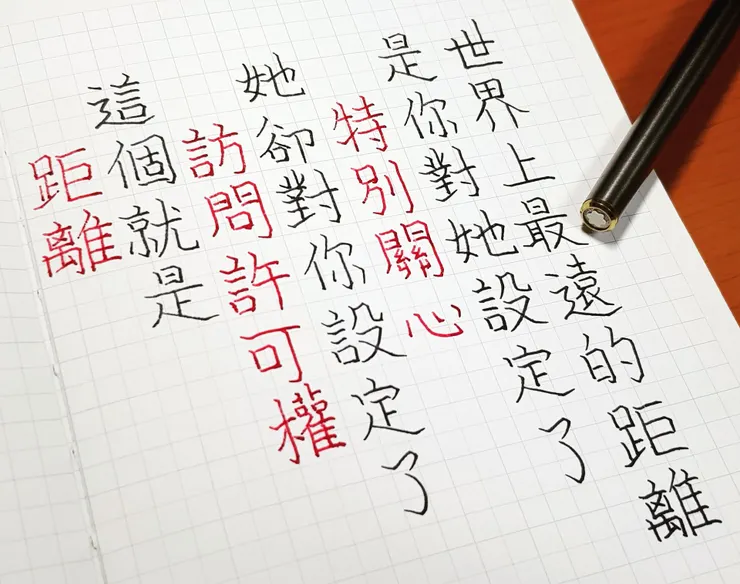 世界上最遠的距離
是你對她設定了
特別關心
她卻對你設定了
訪問許可權
這個就是
距離